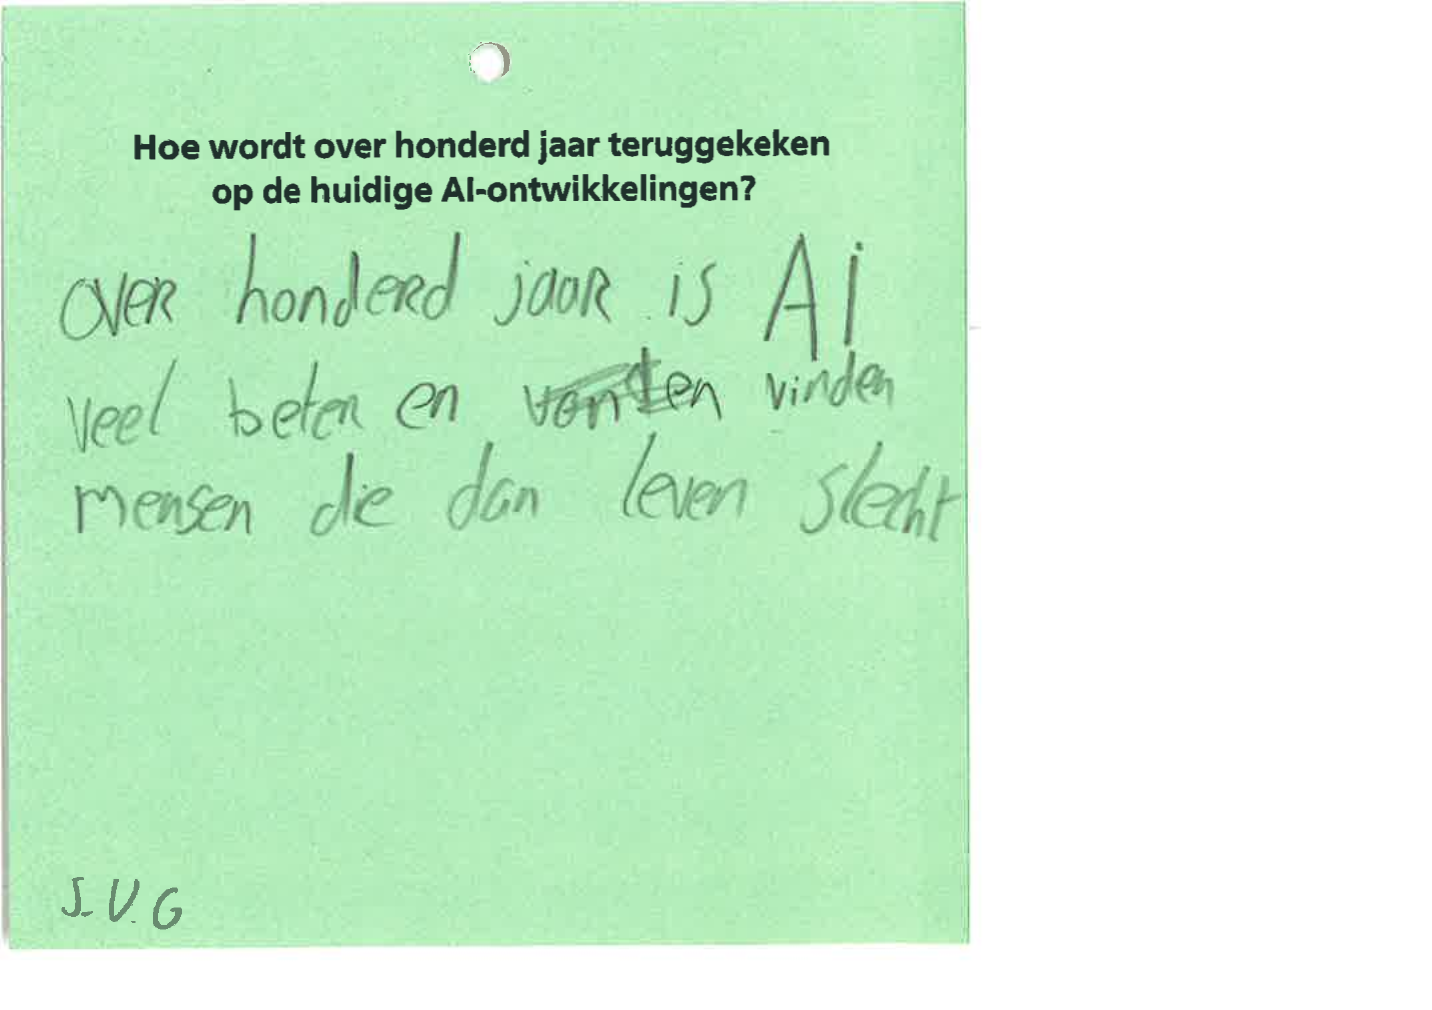 Hoe wordt over honderd jaar teruggekeken
op de huidige AI-ontwikkelingen?
over honderd jaar is Ai
veel beter en vinden
mensen die dan leven slecht
J.V.G